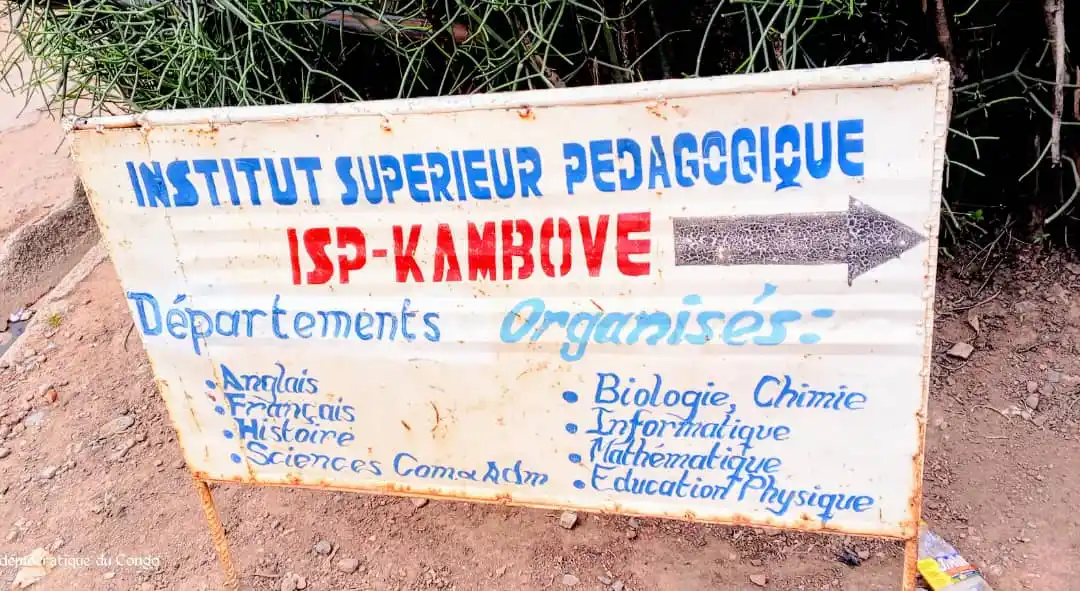 INSTITUT SUPERIEUR PEDAGOGIQUE
ISP-KAMBOVE
Départements Organisés:
• Anglais
• Français
• Histoire
• Sciences Com & Adm
• Biologie, Chimie
• Informatique
• Mathématique
• Education Physique
démocratique du Congo